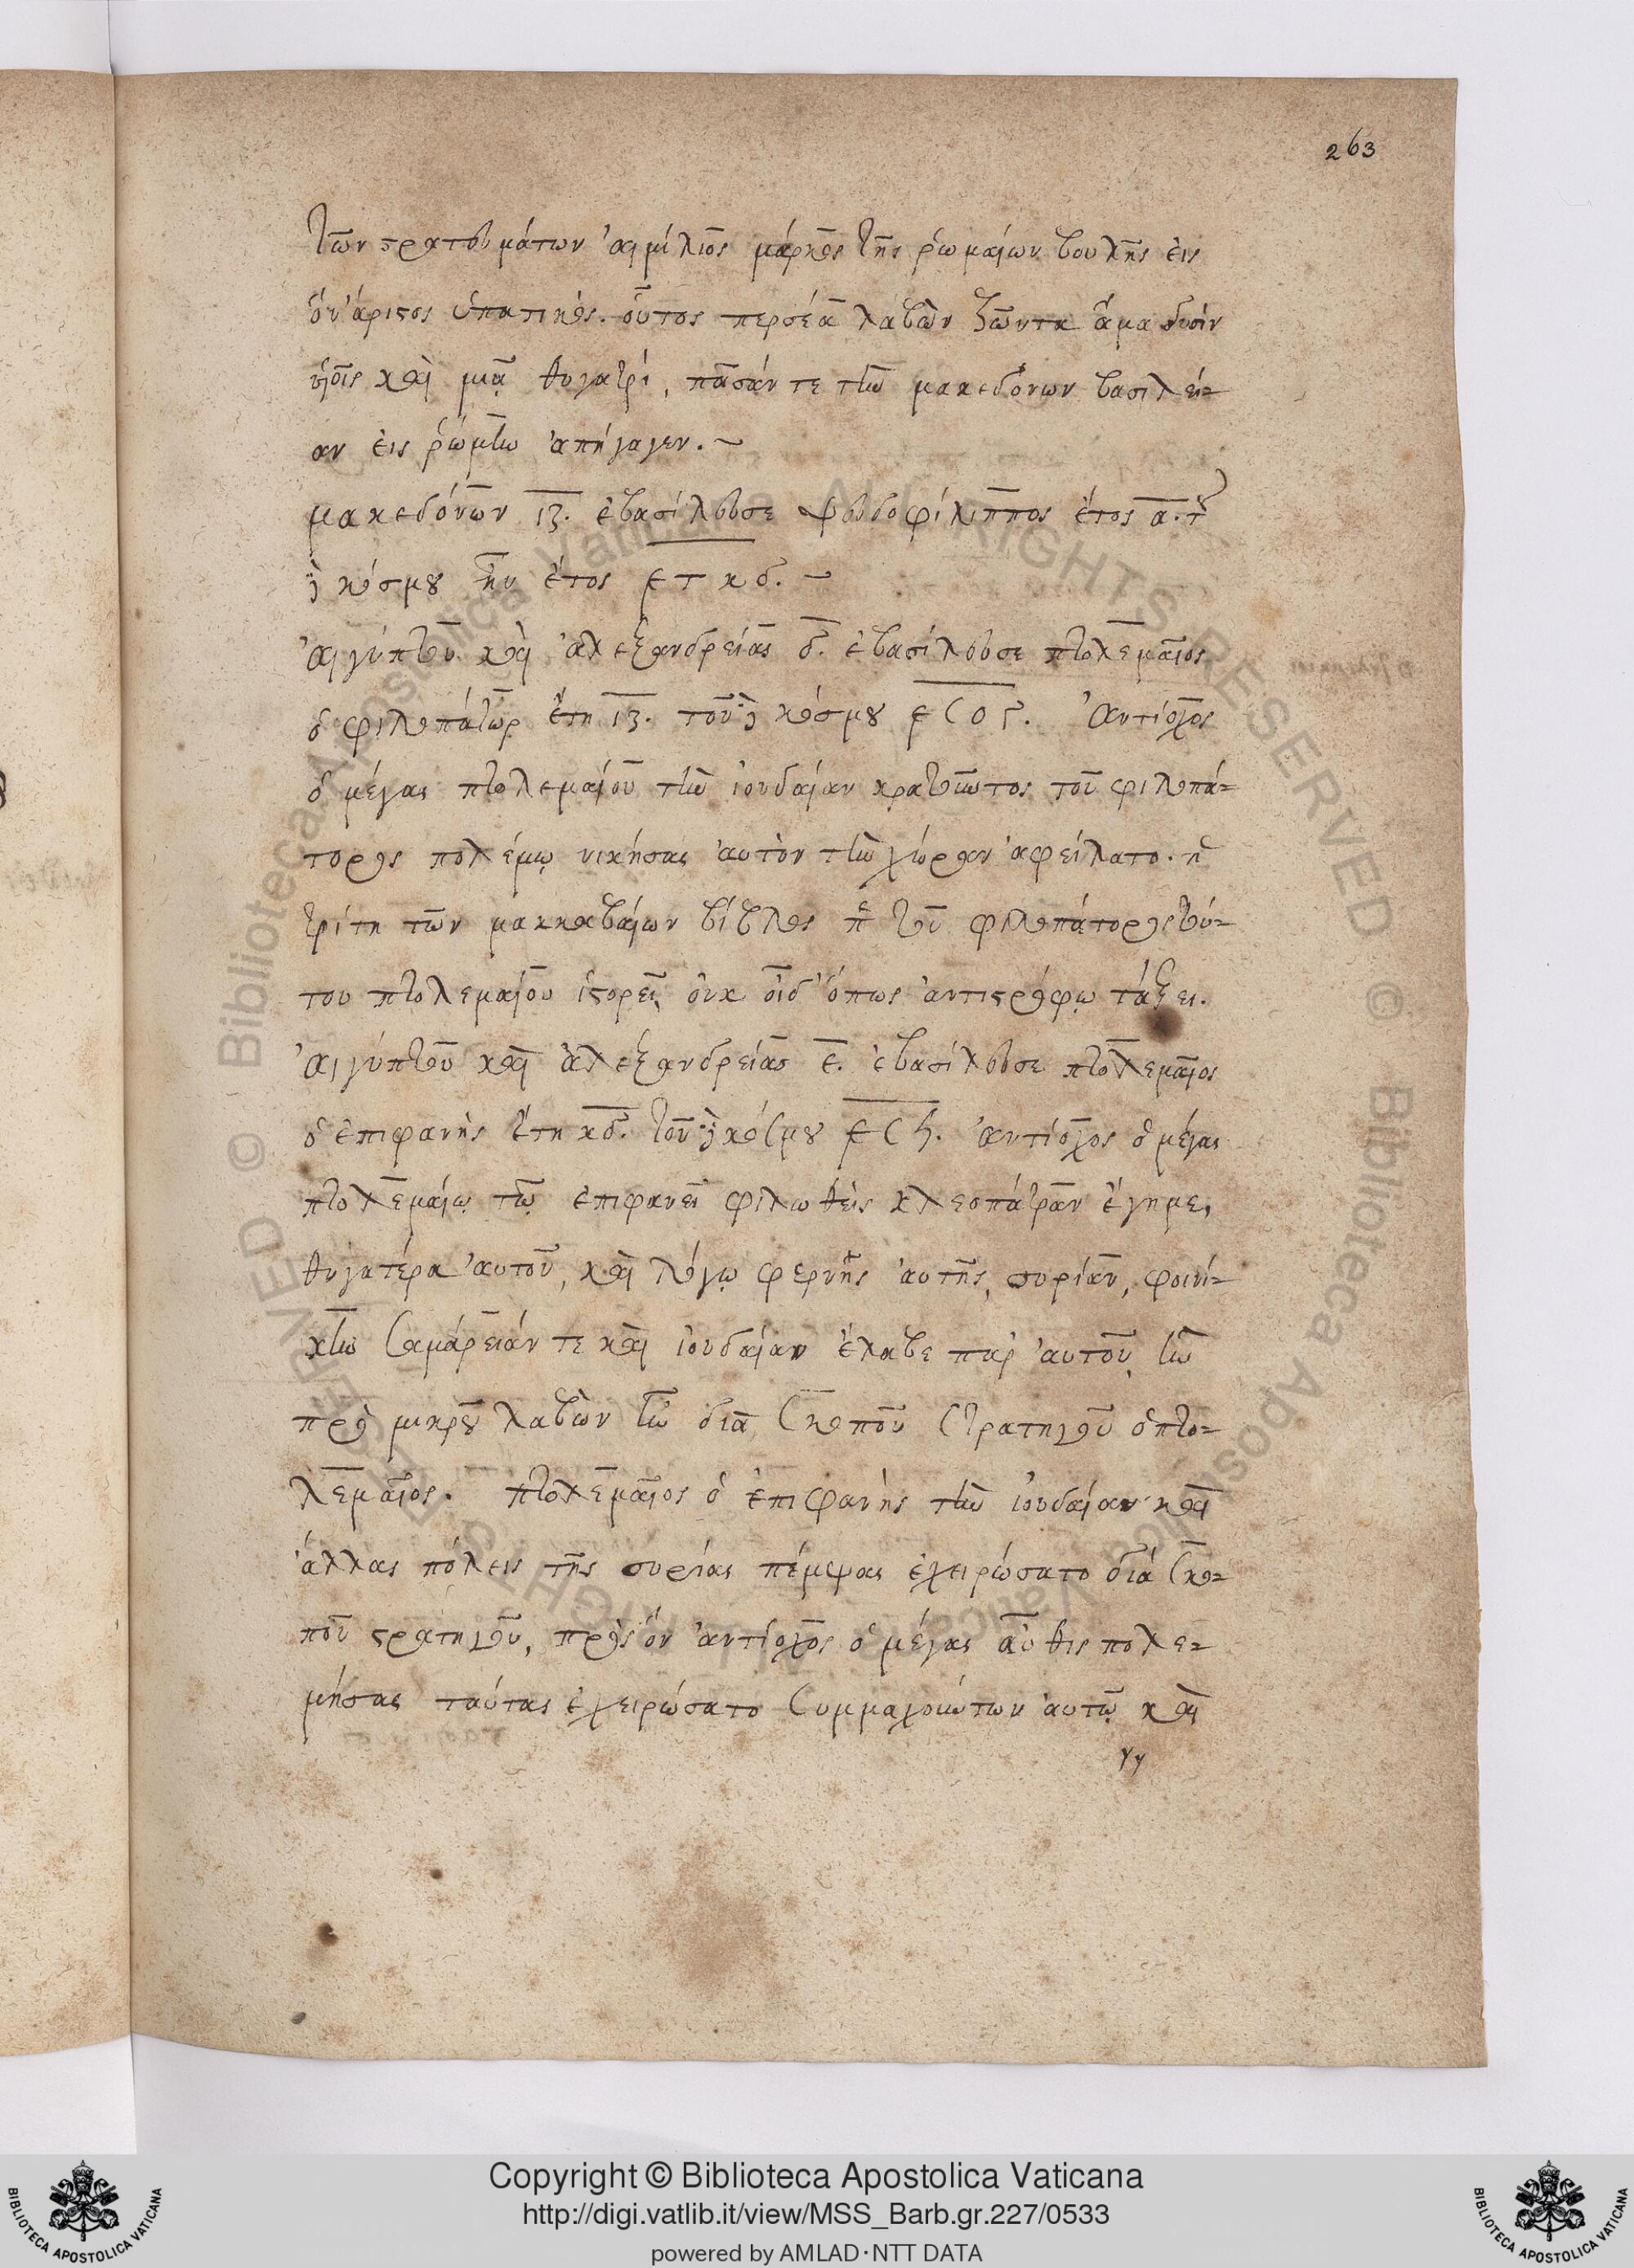 263
τῶν στρατευμάτων αἰμίλιος μάρκος τῆς ῥωμαίων βουλῆς εἷς
ὢν ἄριστος ὑπατικός. οὗτος περσέα λαβὼν ζῶντα ἅμα δυσὶν
υἱοῖς καὶ μιᾷ θυγατρί, πᾶσάν τε τὴν μακεδόνων βασιλεί-
αν εἰς ῥώμην ἀπήγαγεν. ~
μακεδόνων ιζ. ἐβασίλευσε ψευδοφίλιππος ἔτος α. τοῦ
δὲ κόσμου ἦν ἔτος ετκδ. ~
αἰγύπτου καὶ ἀλεξανδρείας δ. ἐβασίλευσε πτολεμαῖος
ὁ φιλοπάτωρ ἔτη ιζ. τοῦ δὲ κόσμου εσος. ἀντίοχος
ὁ μέγας πτολεμαίου τὴν ἰουδαίαν κρατοῦντος τοῦ φιλοπά-
τορος πολέμῳ νικήσας αὐτὸν τὴν χώραν ἀφείλατο. ἡ
τρίτη τῶν μακκαβαίων βίβλος τὰ τοῦ φιλοπάτορος τού-
του πτολεμαίου ἱστορεῖ, οὐκ οἶδ' ὅπως ἀντιστρόφῳ τάξει.
αἰγύπτου καὶ ἀλεξανδρείας ε. ἐβασίλευσε πτολεμαῖος
ὁ ἐπιφανὴς ἔτη κδ. τοῦ δὲ κόσμου εσϟ. ἀντίοχος ὁ μέγας
πτολεμαίῳ τῷ ἐπιφανεῖ φιλωθεὶς κλεοπάτραν ἔγημε,
θυγατέρα αὐτοῦ, καὶ λόγῳ φερνῆς αὐτῆς, συρίαν, φοινί-
κην σαμάρειάν τε καὶ ἰουδαίαν ἔλαβε παρ' αὐτοῦ, ἣν
πρὸ μικροῦ λαβὼν ἦν διὰ σκοποῦ στρατηγοῦ ὁ πτο-
λεμαῖος. πτολεμαῖος ὁ ἐπιφανὴς τὴν ἰουδαίαν καὶ
ἄλλας πόλεις τῆς συρίας πέμψας ἐχειρώσατο διὰ σκο-
ποῦ στρατηγοῦ, πρὸς ὃν ἀντίοχος ὁ μέγας αὖθις πολε-
μήσας ταύτας ἐχειρώσατο συμμαχούντων αὐτῷ καὶ
Copyright © Biblioteca Apostolica Vaticana
http://digi.vatlib.it/view/MSS_Barb.gr.227/0533
powered by AMLAD·NTT DATA
BIBLIOTECA APOSTOLICA VATICANA
BIBLIOTECA APOSTOLICA VATICANA